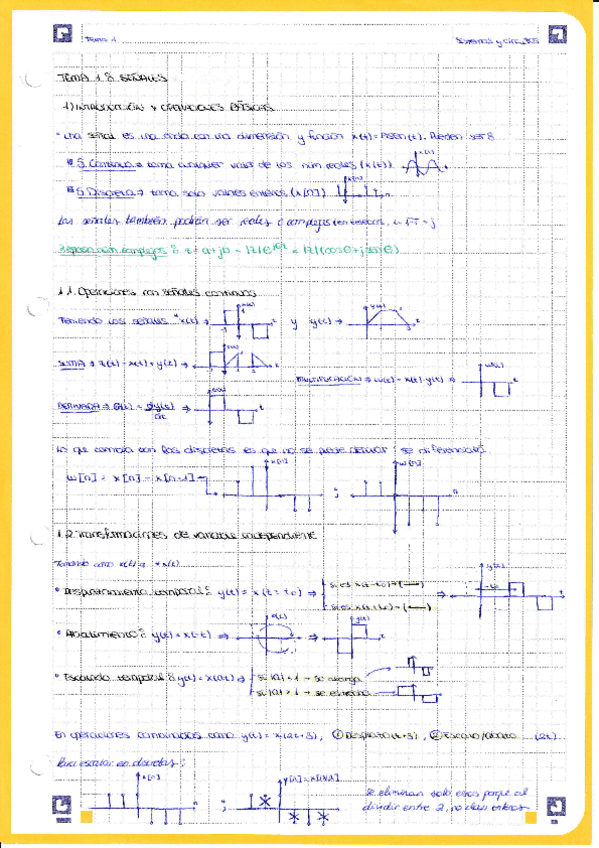 Tema 1 Sistemas y Circuitos
TEMA 1: SEÑALES
1) INTRODUCCIÓN Y OPERACIONES BÁSICAS
• Una señal es una onda con una dimensión y función x(t) = Asen(t). Pueden ser:
S. Continua → toma cualquier valor de los núm reales (x(t))
S. Discreta → toma solo valores enteros (x[n])
Las señales también podrán ser reales o complejas
Repaso núm complejos: z = a+jb = |z|e^jθ = |z|(cosθ+jsenθ)
1.1. Operaciones con señales continuas
Teniendo las señales x(t) → y y(t) →
SUMA → z(t) = x(t) + y(t) →
MULTIPLICACIÓN → w(t) = x(t)·y(t) →
DERIVADA → = dy(t)/dt →
Lo que cambia con las discretas es que no se puede derivar, se diferencia
w[n] = x[n] - x[n-1] → x[n] ; w[n]
1.2 Transformaciones de variable independiente
Teniendo como x(t)
• Desplazamiento temporal: y(t) = x(t ± t0) ⇒
• Abatimiento: y(t) = x(-t) ⇒
• Escalado temporal: y(t) = x(at) ⇒ si |a| < 1 → se alarga
si |a| > 1 → se estrecha
En operaciones combinadas como y(t) = x(2t+3), ① Desplazo (t+3), ② Escalo/abato (2t)
Para escalar en discretas:
x[n] ;
Se eliminan solo esos porque al
dividir entre 2, no dan enteros